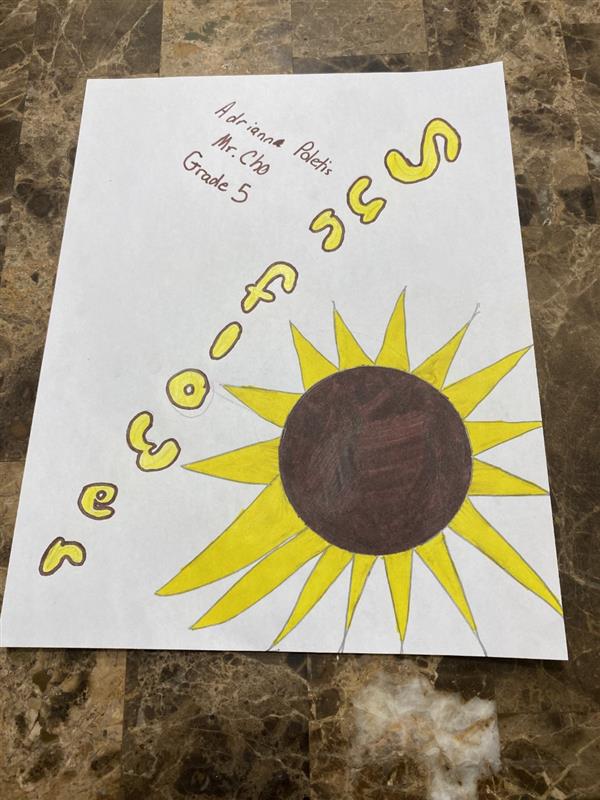 Adrianna Poletis
Mr. Cho
Grade 5
Sunflower